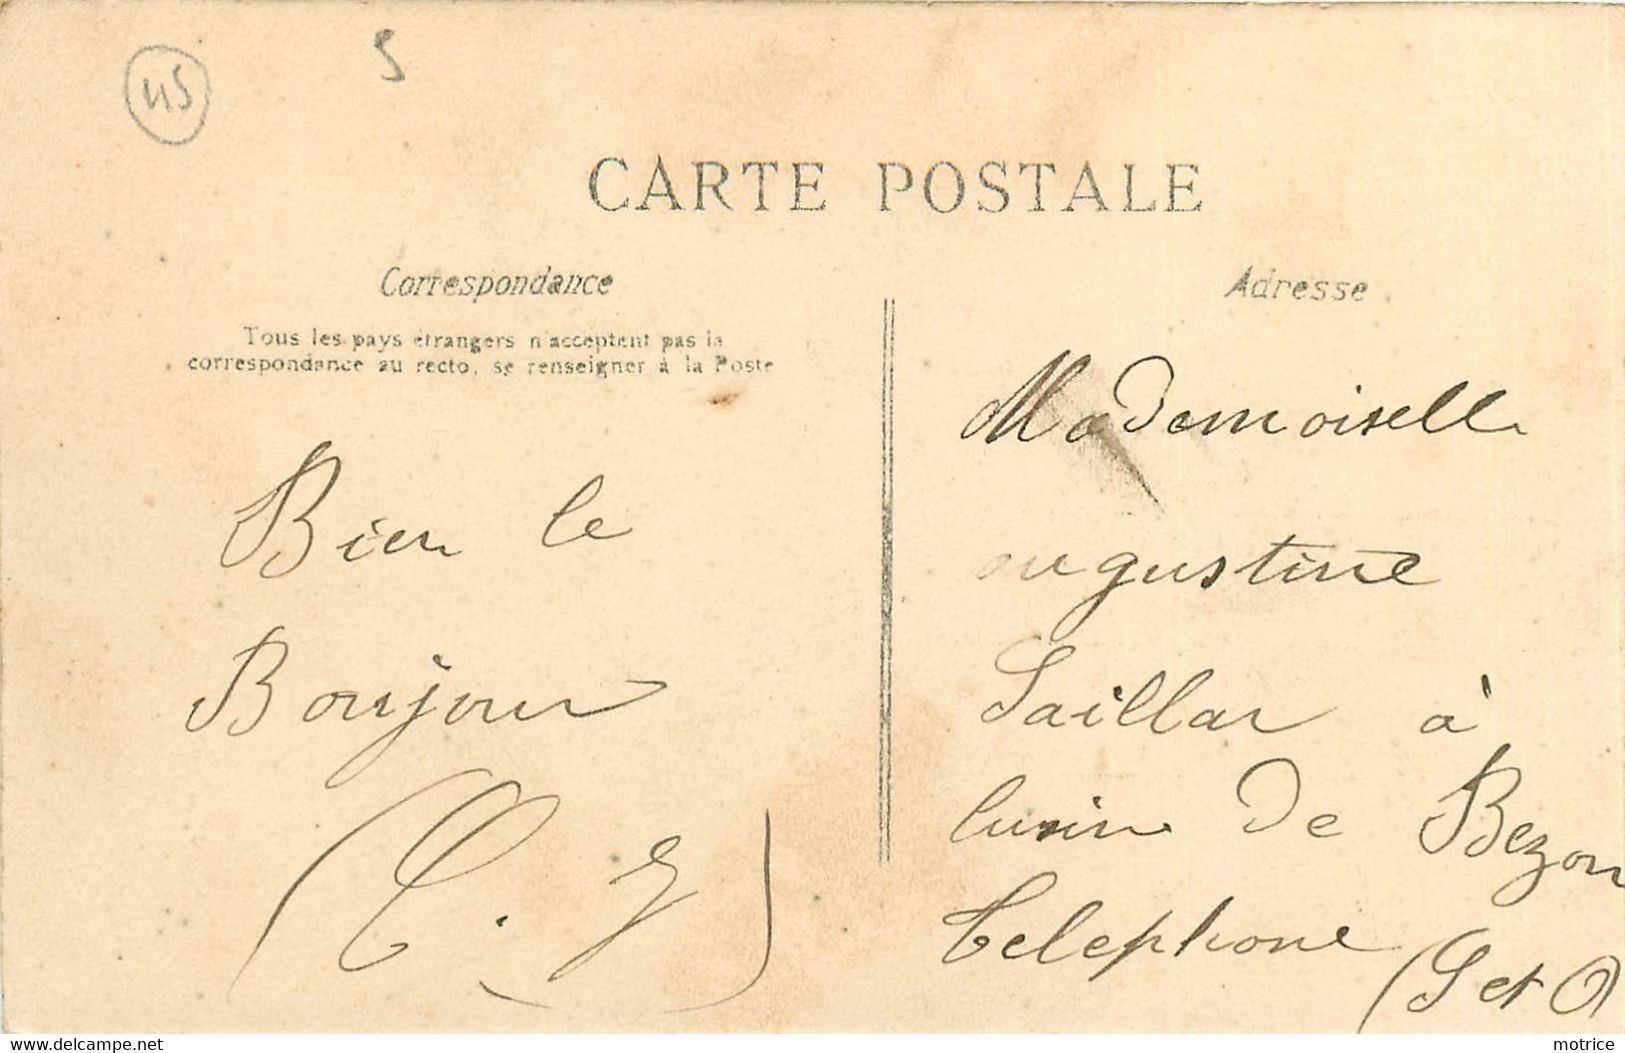 45
5
CARTE POSTALE
Correspondance
Tous les pays étrangers n'acceptent pas la
correspondance au recto, se renseigner à la Poste
Bien le
Bonjour
Adresse
Mademoiselle
augustine
Saillar à
lusin De Bezon
telephone
(S et O)
motrice